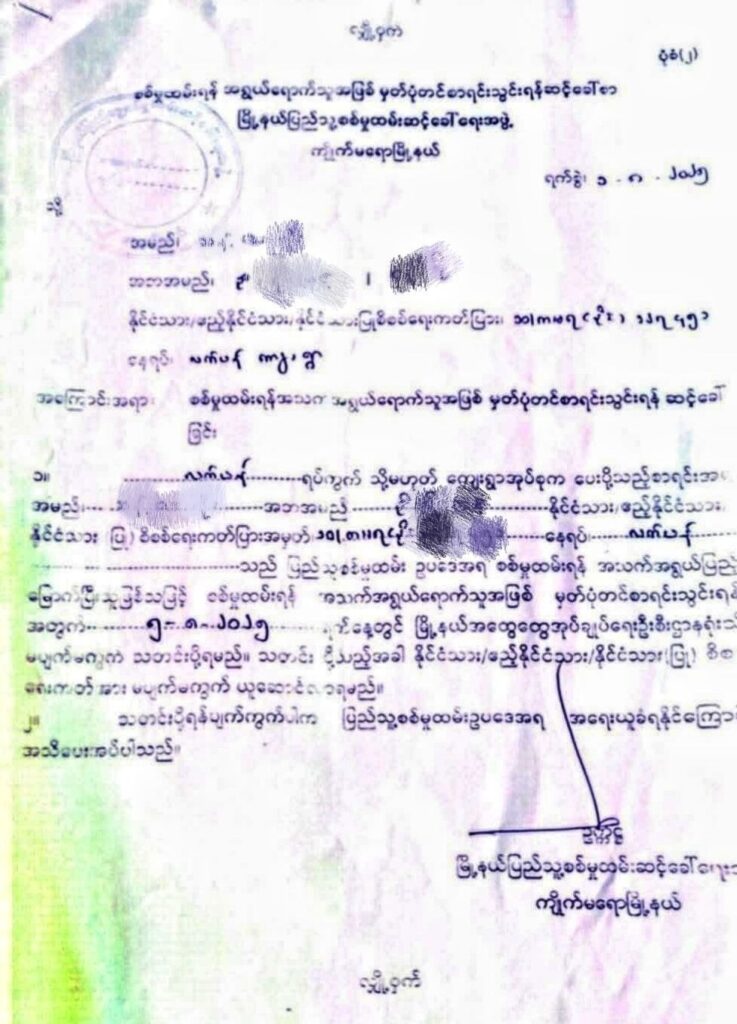 လျှို့ဝှက်
ပုံစံ(၂)
စစ်မှုထမ်းရန် အရွယ်ရောက်သူအဖြစ် မှတ်ပုံတင်စာရင်းသွင်းရန်ဆင့်ခေါ်စာ
မြို့နယ်ပြည်သူ့စစ်မှုထမ်းဆင့်ခေါ်ရေးအဖွဲ့
ကျိုက်မရောမြို့နယ်
ရက်စွဲ၊ ၁ - ၈ - ၂၀၂၅
သို့
အမည်၊
အဘအမည်၊ ဦး
နိုင်ငံသား/ဧည့်နိုင်ငံသား/နိုင်ငံသားပြုစိစစ်ရေးကတ်ပြား၊ ၁၀/ကမရ(နိုင်)
နေရပ်၊ လက်ပန် ကျေးရွာ
အကြောင်းအရာ စစ်မှုထမ်းရန်အသက် အရွယ်ရောက်သူအဖြစ် မှတ်ပုံတင်စာရင်းသွင်းရန် ဆင့်ခေါ်
ခြင်း
၁။ လက်ပန် ရပ်ကွက် သို့မဟုတ် ကျေးရွာအုပ်စုက ပေးပို့သည့်စာရင်းအရ
အမည် အဘအမည် ဦး နိုင်ငံသား/ဧည့်နိုင်ငံသား/
နိုင်ငံသား (ပြု) စိစစ်ရေးကတ်ပြားအမှတ် ၁၀/ကမရ(နိုင်) နေရပ် လက်ပန်
သည် ပြည်သူ့စစ်မှုထမ်း ဥပဒေအရ စစ်မှုထမ်းရန် အသက်အရွယ်ပြည့်
မြောက်ပြီးသူဖြစ်သဖြင့် စစ်မှုထမ်းရန် အသက်အရွယ်ရောက်သူအဖြစ် မှတ်ပုံတင်စာရင်းသွင်းရန်
အတွက် ၅-၈-၂၀၂၅ ရက်နေ့တွင် မြို့နယ်အထွေထွေအုပ်ချုပ်ရေးဦးစီးဌာနရုံးသို့
မပျက်မကွက် သတင်းပို့ရမည်။ သတင်း ပို့သည့်အခါ နိုင်ငံသား/ဧည့်နိုင်ငံသား/နိုင်ငံသား(ပြု) စိစစ်
ရေးကတ်အား မပျက်မကွက် ယူဆောင်လာရမည်။
၂။ သတင်းပို့ရန်ပျက်ကွက်ပါက ပြည်သူ့စစ်မှုထမ်းဥပဒေအရ အရေးယူခံရနိုင်ကြောင်း
အသိပေးအပ်ပါသည်။
ဥက္ကဋ္ဌ
မြို့နယ်ပြည်သူ့စစ်မှုထမ်းဆင့်ခေါ်ရေးအ
ကျိုက်မရောမြို့နယ်
လျှို့ဝှက်